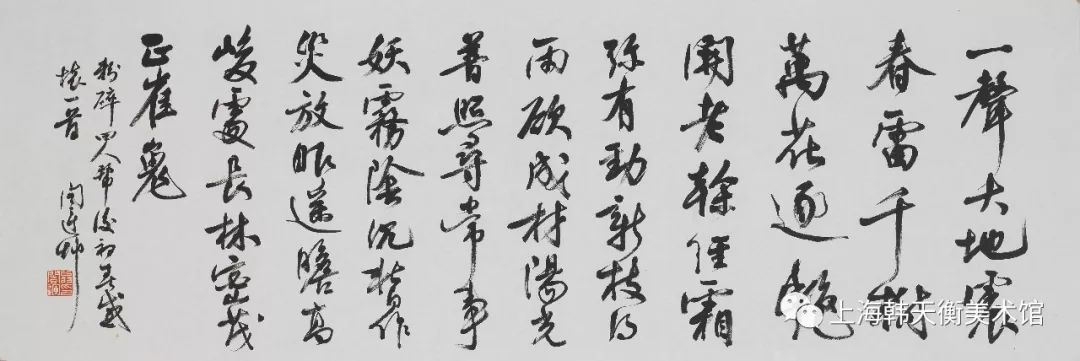 一聲大地震
春雷千樹
萬花逐
開老榦經霜
弥有勁新枝得
雨碩成材陽光
普照尋常事
妖霧陰沉枉作
災放眼遥瞻高
峻處長林密茂
正崔嵬
粉碎四人幫後初春感
懷一首
上海韩天衡美术馆